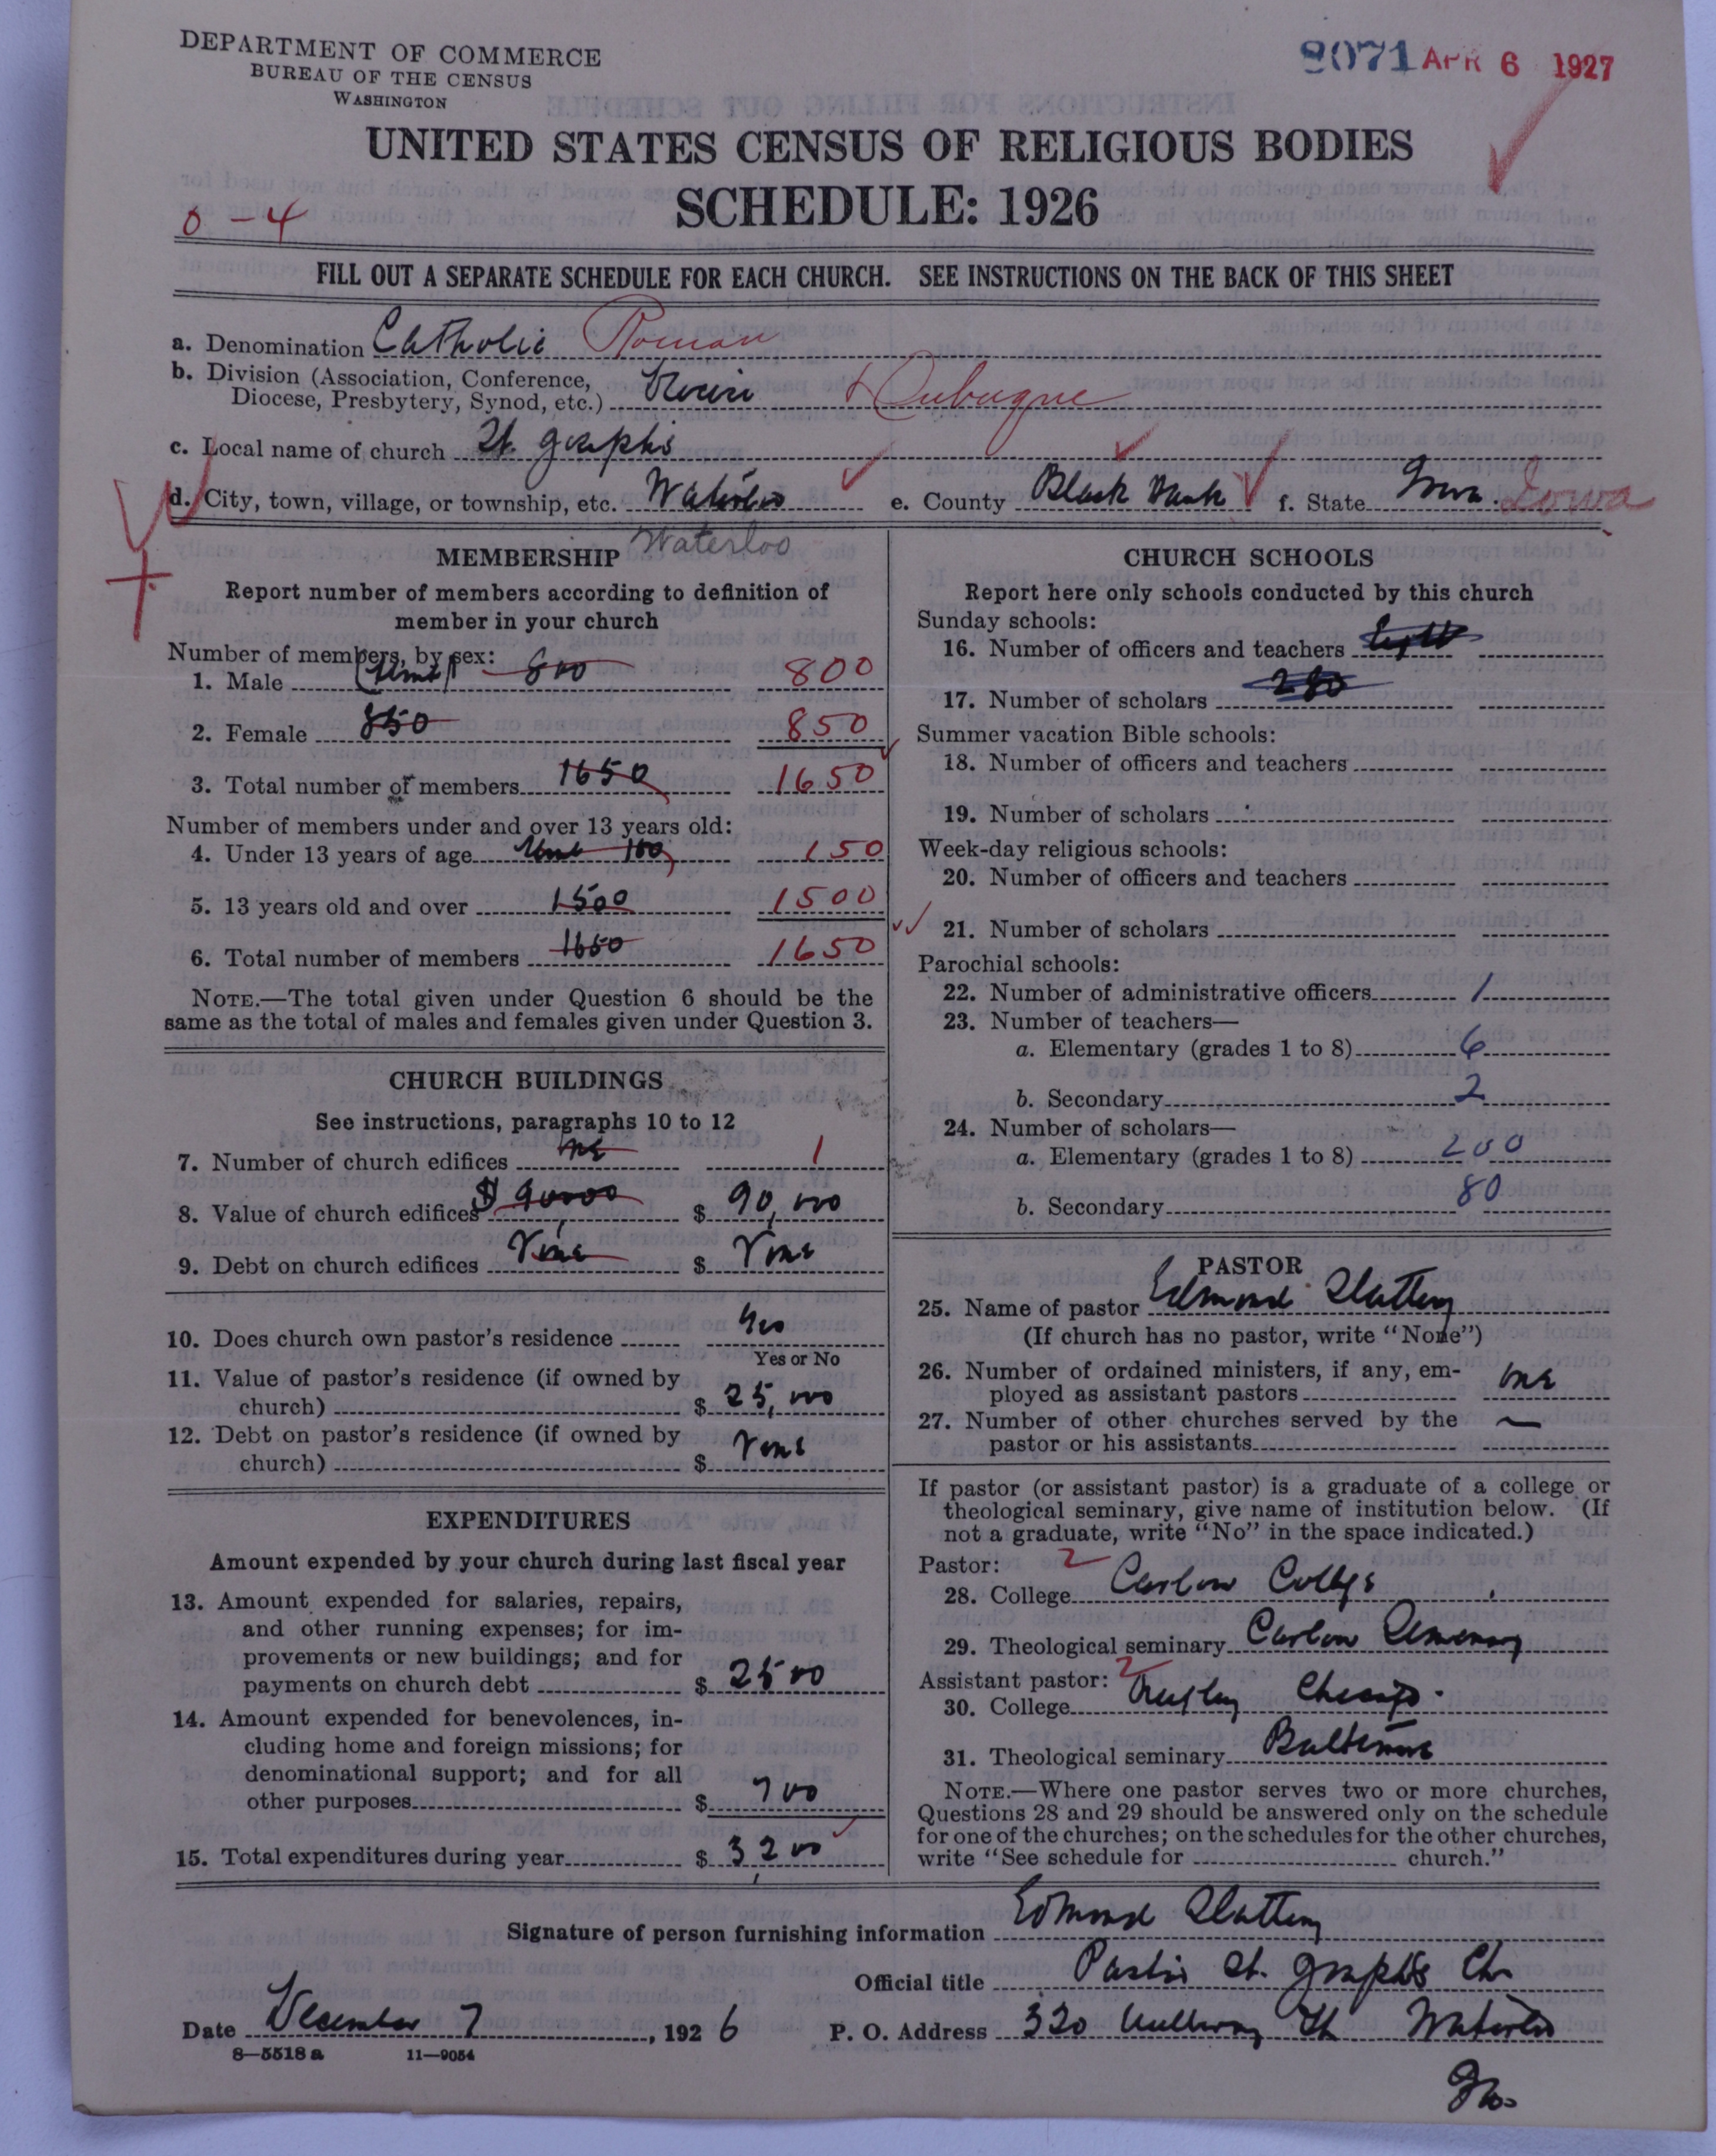 DEPARTMENT OF COMMERCE
BUREAU OF THE CENSUS
WASHINGTON
8071 APR 6 1927
UNITED STATES CENSUS OF RELIGIOUS BODIES
SCHEDULE: 1926
0-4
FILL OUT A SEPARATE SCHEDULE FOR EACH CHURCH. SEE INSTRUCTIONS ON THE BACK OF THIS SHEET
a. Denomination Catholic Roman
b. Division (Association, Conference,
Diocese, Presbytery, Synod, etc.) Dubuque
c. Local name of church St. Josephs
d. City, town, village, or township, etc. Waterloo e. County Black Hawk f. State Iowa Iowa
Waterloo
MEMBERSHIP
Report number of members according to definition of
member in your church
Number of members, by sex:
1. Male (about) 800 800
2. Female 850 850
3. Total number of members 1650 1650
Number of members under and over 13 years old:
4. Under 13 years of age 150 150
5. 13 years old and over 1500 1500
6. Total number of members 1650 1650
NOTE.—The total given under Question 6 should be the
same as the total of males and females given under Question 3.
CHURCH BUILDINGS
See instructions, paragraphs 10 to 12
7. Number of church edifices one 1
8. Value of church edifices $90000 $ 90,000
9. Debt on church edifices None $ None
10. Does church own pastor's residence Yes
Yes or No
11. Value of pastor's residence (if owned by
church) $ 25,000
12. Debt on pastor's residence (if owned by
church) $ None
EXPENDITURES
Amount expended by your church during last fiscal year
13. Amount expended for salaries, repairs,
and other running expenses; for im-
provements or new buildings; and for
payments on church debt $ 2500
14. Amount expended for benevolences, in-
cluding home and foreign missions; for
denominational support; and for all
other purposes $ 700
15. Total expenditures during year $ 3200
CHURCH SCHOOLS
Report here only schools conducted by this church
Sunday schools:
16. Number of officers and teachers
17. Number of scholars 280
Summer vacation Bible schools:
18. Number of officers and teachers
19. Number of scholars
Week-day religious schools:
20. Number of officers and teachers
21. Number of scholars
Parochial schools:
22. Number of administrative officers 1
23. Number of teachers—
a. Elementary (grades 1 to 8) 6
b. Secondary 2
24. Number of scholars—
a. Elementary (grades 1 to 8) 200
b. Secondary 80
PASTOR
25. Name of pastor Edmond Slattery
(If church has no pastor, write "None")
26. Number of ordained ministers, if any, em-
ployed as assistant pastors one
27. Number of other churches served by the
pastor or his assistants —
If pastor (or assistant pastor) is a graduate of a college or
theological seminary, give name of institution below. (If
not a graduate, write "No" in the space indicated.)
Pastor: 2
28. College Carlow College
29. Theological seminary Carlow Seminary
Assistant pastor: 2
30. College Chicago.
31. Theological seminary Baltimore
NOTE.—Where one pastor serves two or more churches,
Questions 28 and 29 should be answered only on the schedule
for one of the churches; on the schedules for the other churches,
write "See schedule for church."
Signature of person furnishing information Edmond Slattery
Official title Pastor St. Josephs Ch
Date December 7, 1926 P. O. Address 320 Mullway St Waterloo
Ia.
8—5518 a 11—9054